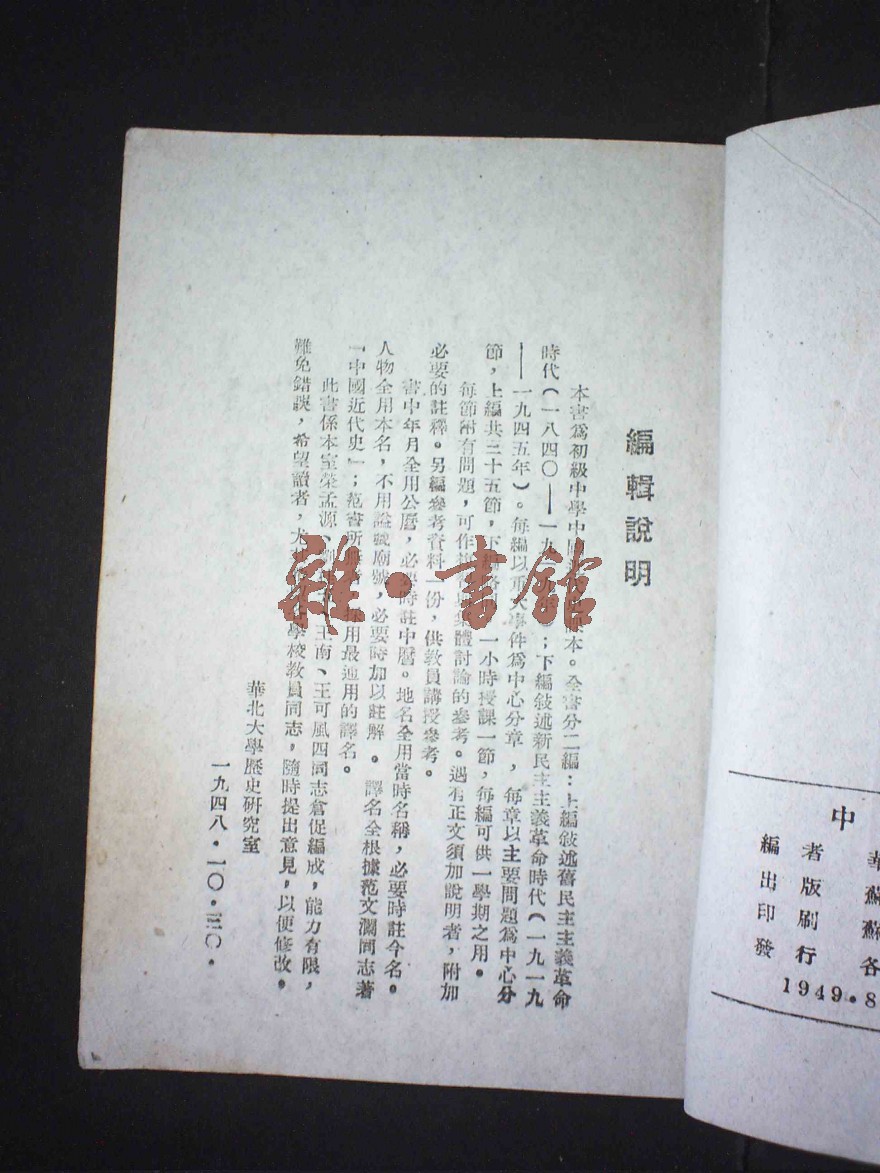 編輯說明
本書爲初級中學中國近代史課本。全書分二編：上編敍述舊民主主義革命
時代（一八四〇——一九一九）；下編敍述新民主主義革命時代（一九一九
——一九四五年）。每編以重大事件爲中心分章，每章以主要問題爲中心分
節，上編共三十五節，下編 一小時授課一節，每編可供一學期之用。
每節附有問題，可作 集體討論的參考。遇有正文須加說明者，附加
必要的註釋。另編參考資料一份，供教員講授參考。
書中年月全用公曆，必要時註中曆。地名全用當時名稱，必要時註今名。
人物全用本名，不用諡號廟號，必要時加以註解。譯名全根據范文瀾同志著
「中國近代史」；范書所無 用最通用的譯名。
此書係本室榮孟源、 王南、王可風四同志倉促編成，能力有限，
難免錯誤，希望讀者，尤 學校教員同志，隨時提出意見，以便修改。
華北大學歷史研究室
一九四八·一〇·三〇·
雜·書館
中
編者 華
出版 蘇
印刷 蘇
發行 各
1949·8